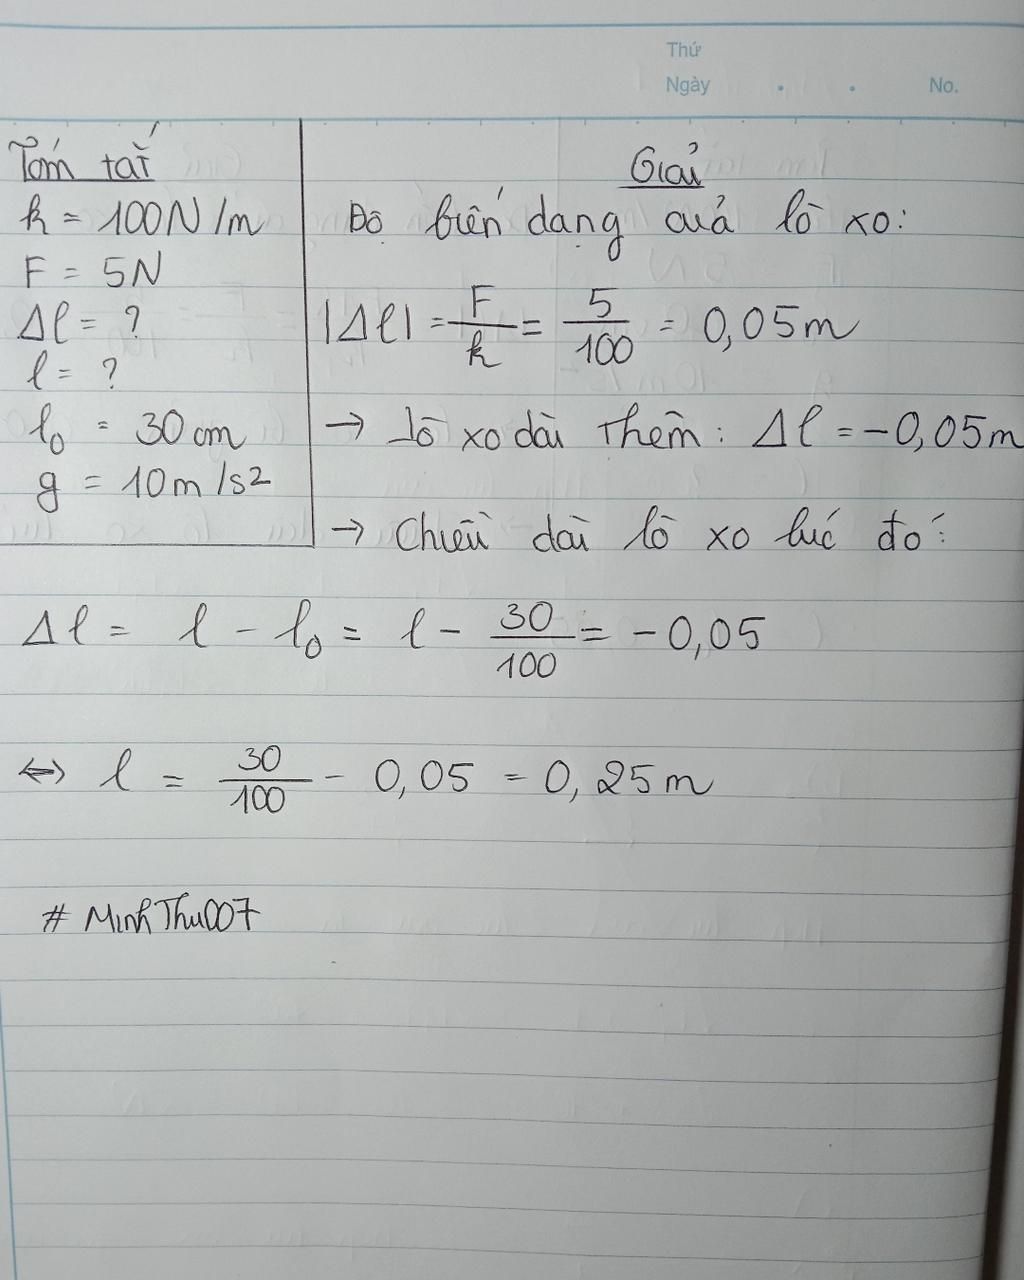 Thứ
Ngày . . No.
Tóm tắt
k = 100N/m
F = 5N
Δl = ?
l = ?
l₀ = 30cm
g = 10m/s2
Giải
Độ biến dạng cuả lò xo:
|Δl| = F/k = 5/100 = 0,05m
→ lò xo dài thêm: Δl = -0,05m
→ Chiều dài lò xo lúc đó:
Δl = l - l₀ = l - 30/100 = -0,05
⇔ l = 30/100 - 0,05 = 0,25m
# MinhThu007